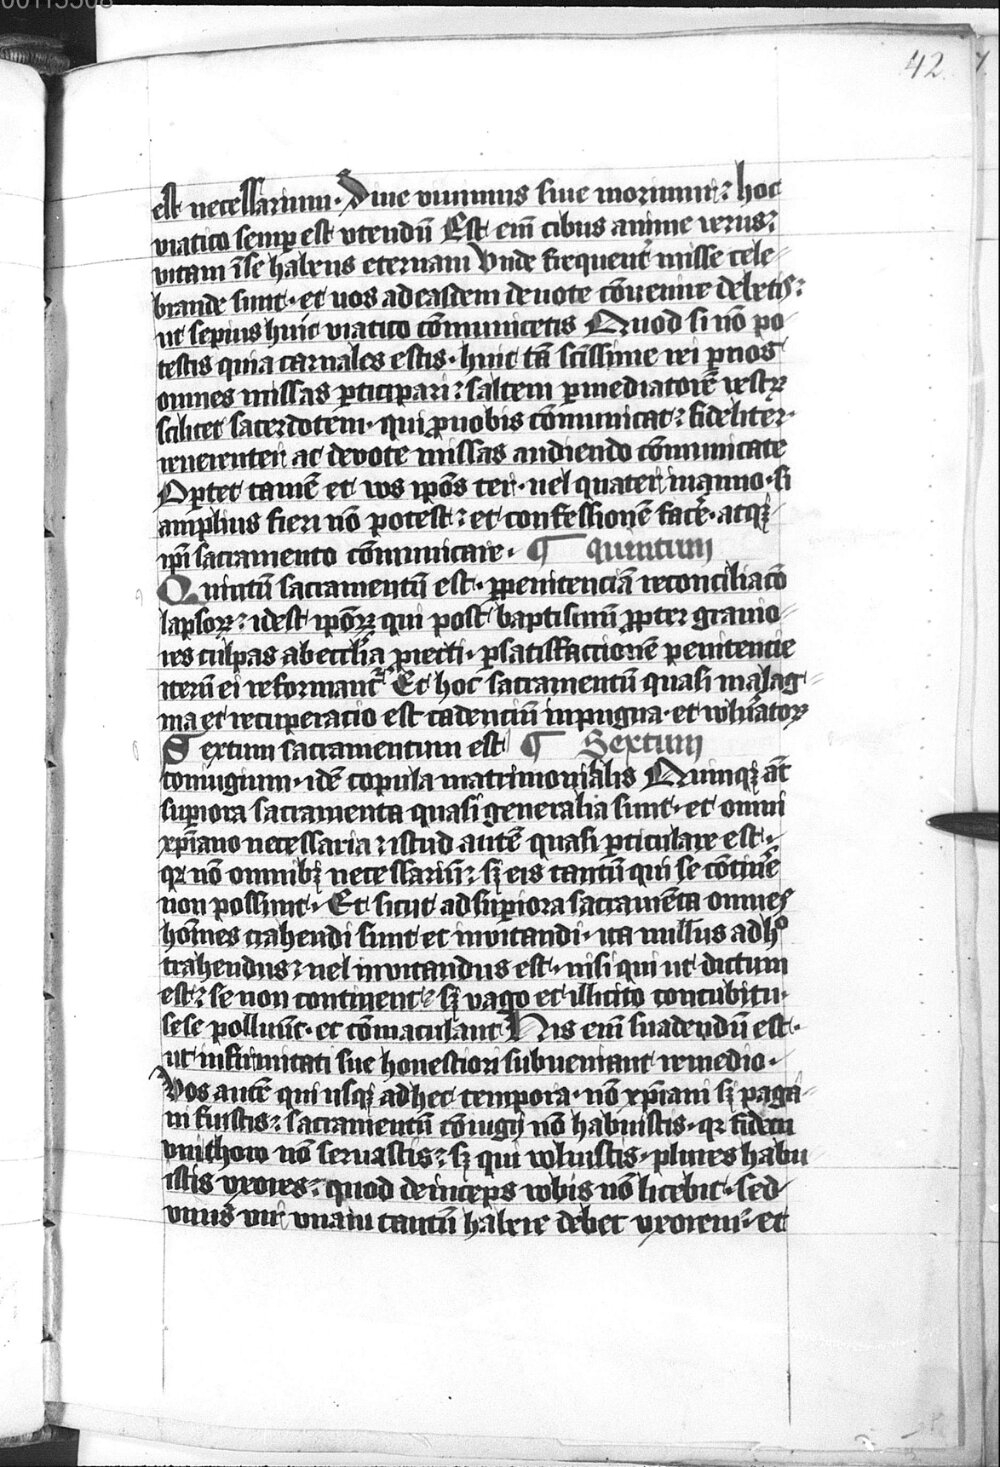 00113308
42
est necessarium. Siue viuimus siue morimur: hoc
viatico semp est vtendū Est em̄ cibus anime verus:
vitam ī se habens eternam Vnde frequent᷑ misse cele
brande sunt. et vos ad easdem deuote cōuenire debetis:
ut sepius huic viatico cōmunicetis Quod si nō po
testis quia carnales estis. huic tā scīssime rei
omnes missas ꝑticipari: saltem ꝑ mediatorē vestrꝝ
scilicet sacerdotem. qui ꝓ uobis cōmunicat: fideliter.
reuerenter ac deuote missas audiendo cōmunicate
Oportet tamē et vos ip̄os ter. uel quater in anno. si
amplius fieri nō potest: et confessionē facē. atqꝫ
ip̄i sacramento cōmunicare. ¶ Quintum
Quintū sacramentū est. ꝑ penitenciā reconciliacō
lapsorꝝ: idest ip̄orꝝ qui post baptismū ꝓpter grauio
res culpas ab eccl̄ia ꝓiecti. ꝑ satisfactionē penitencie
iterū ei reformant᷑ Et hoc sacramentū quasi malag
ma et recuperacio est cadenciū in pugna. et wln̄atorꝝ
Sextum sacramentum est ¶ Sextum
coniugium. idē copula matrimonialis Quinqꝫ at̄
suꝑiora sacramenta quasi generalia sunt. et omni
xp̄iano necessaria: istud autē quasi ꝑticulare est.
qꝛ nō omnibꝫ necessariū: sꝫ eis tantū qui se cōtinē
non possunt. Et sicut ad suꝑiora sacramēta omnes
homīes trahendi sunt et inuitandi. ita nullus ad hͦ
trahendus: uel inuitandus est. nisi qui ut dictum
est: se non continent: sꝫ vago et illicito concubitu
sese polluūt. et cōmaculant His em̄ suadendū est.
ut infirmitati sue honestiori subueniant remedio.
Vos autē qui usqꝫ ad hec tempora. nō xp̄iani sꝫ paga
ni fuistis: sacramentū cōiugij nō habuistis. qꝛ fidem
vnithoro nō seruastis: sꝫ qui voluistis. plures habu
istis vxores: quod deinceps vobis nō licebit. sed
vnus vir vnam tantū habere debet vxorem: et